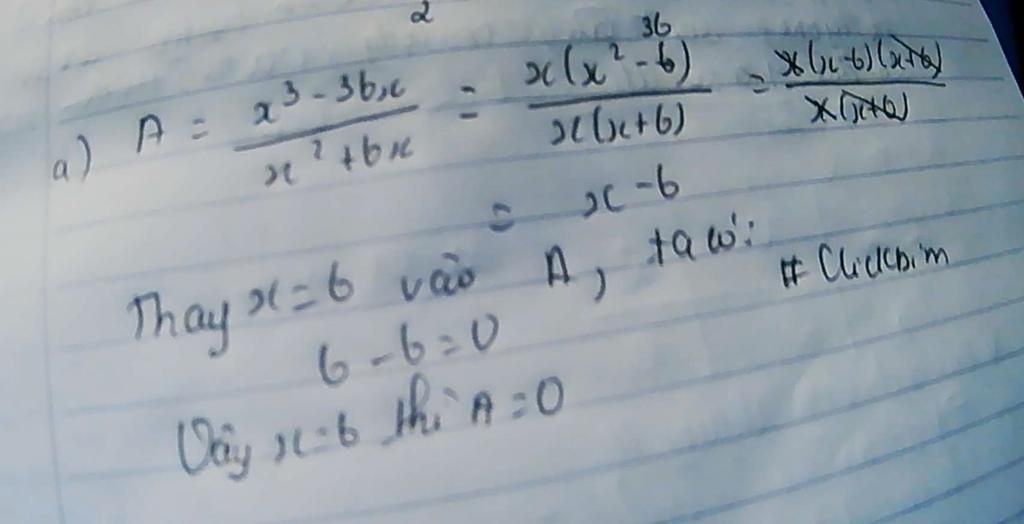 2
36
a) A = x³ - 36x / x² + 6x = x(x² - 6) / x(x+6) = x(x-6)(x+6) / x(x+6)
= x - 6
Thay x = 6 vào A, ta có:
# Clickbim
6 - 6 = 0
Vậy x = 6 thì A = 0